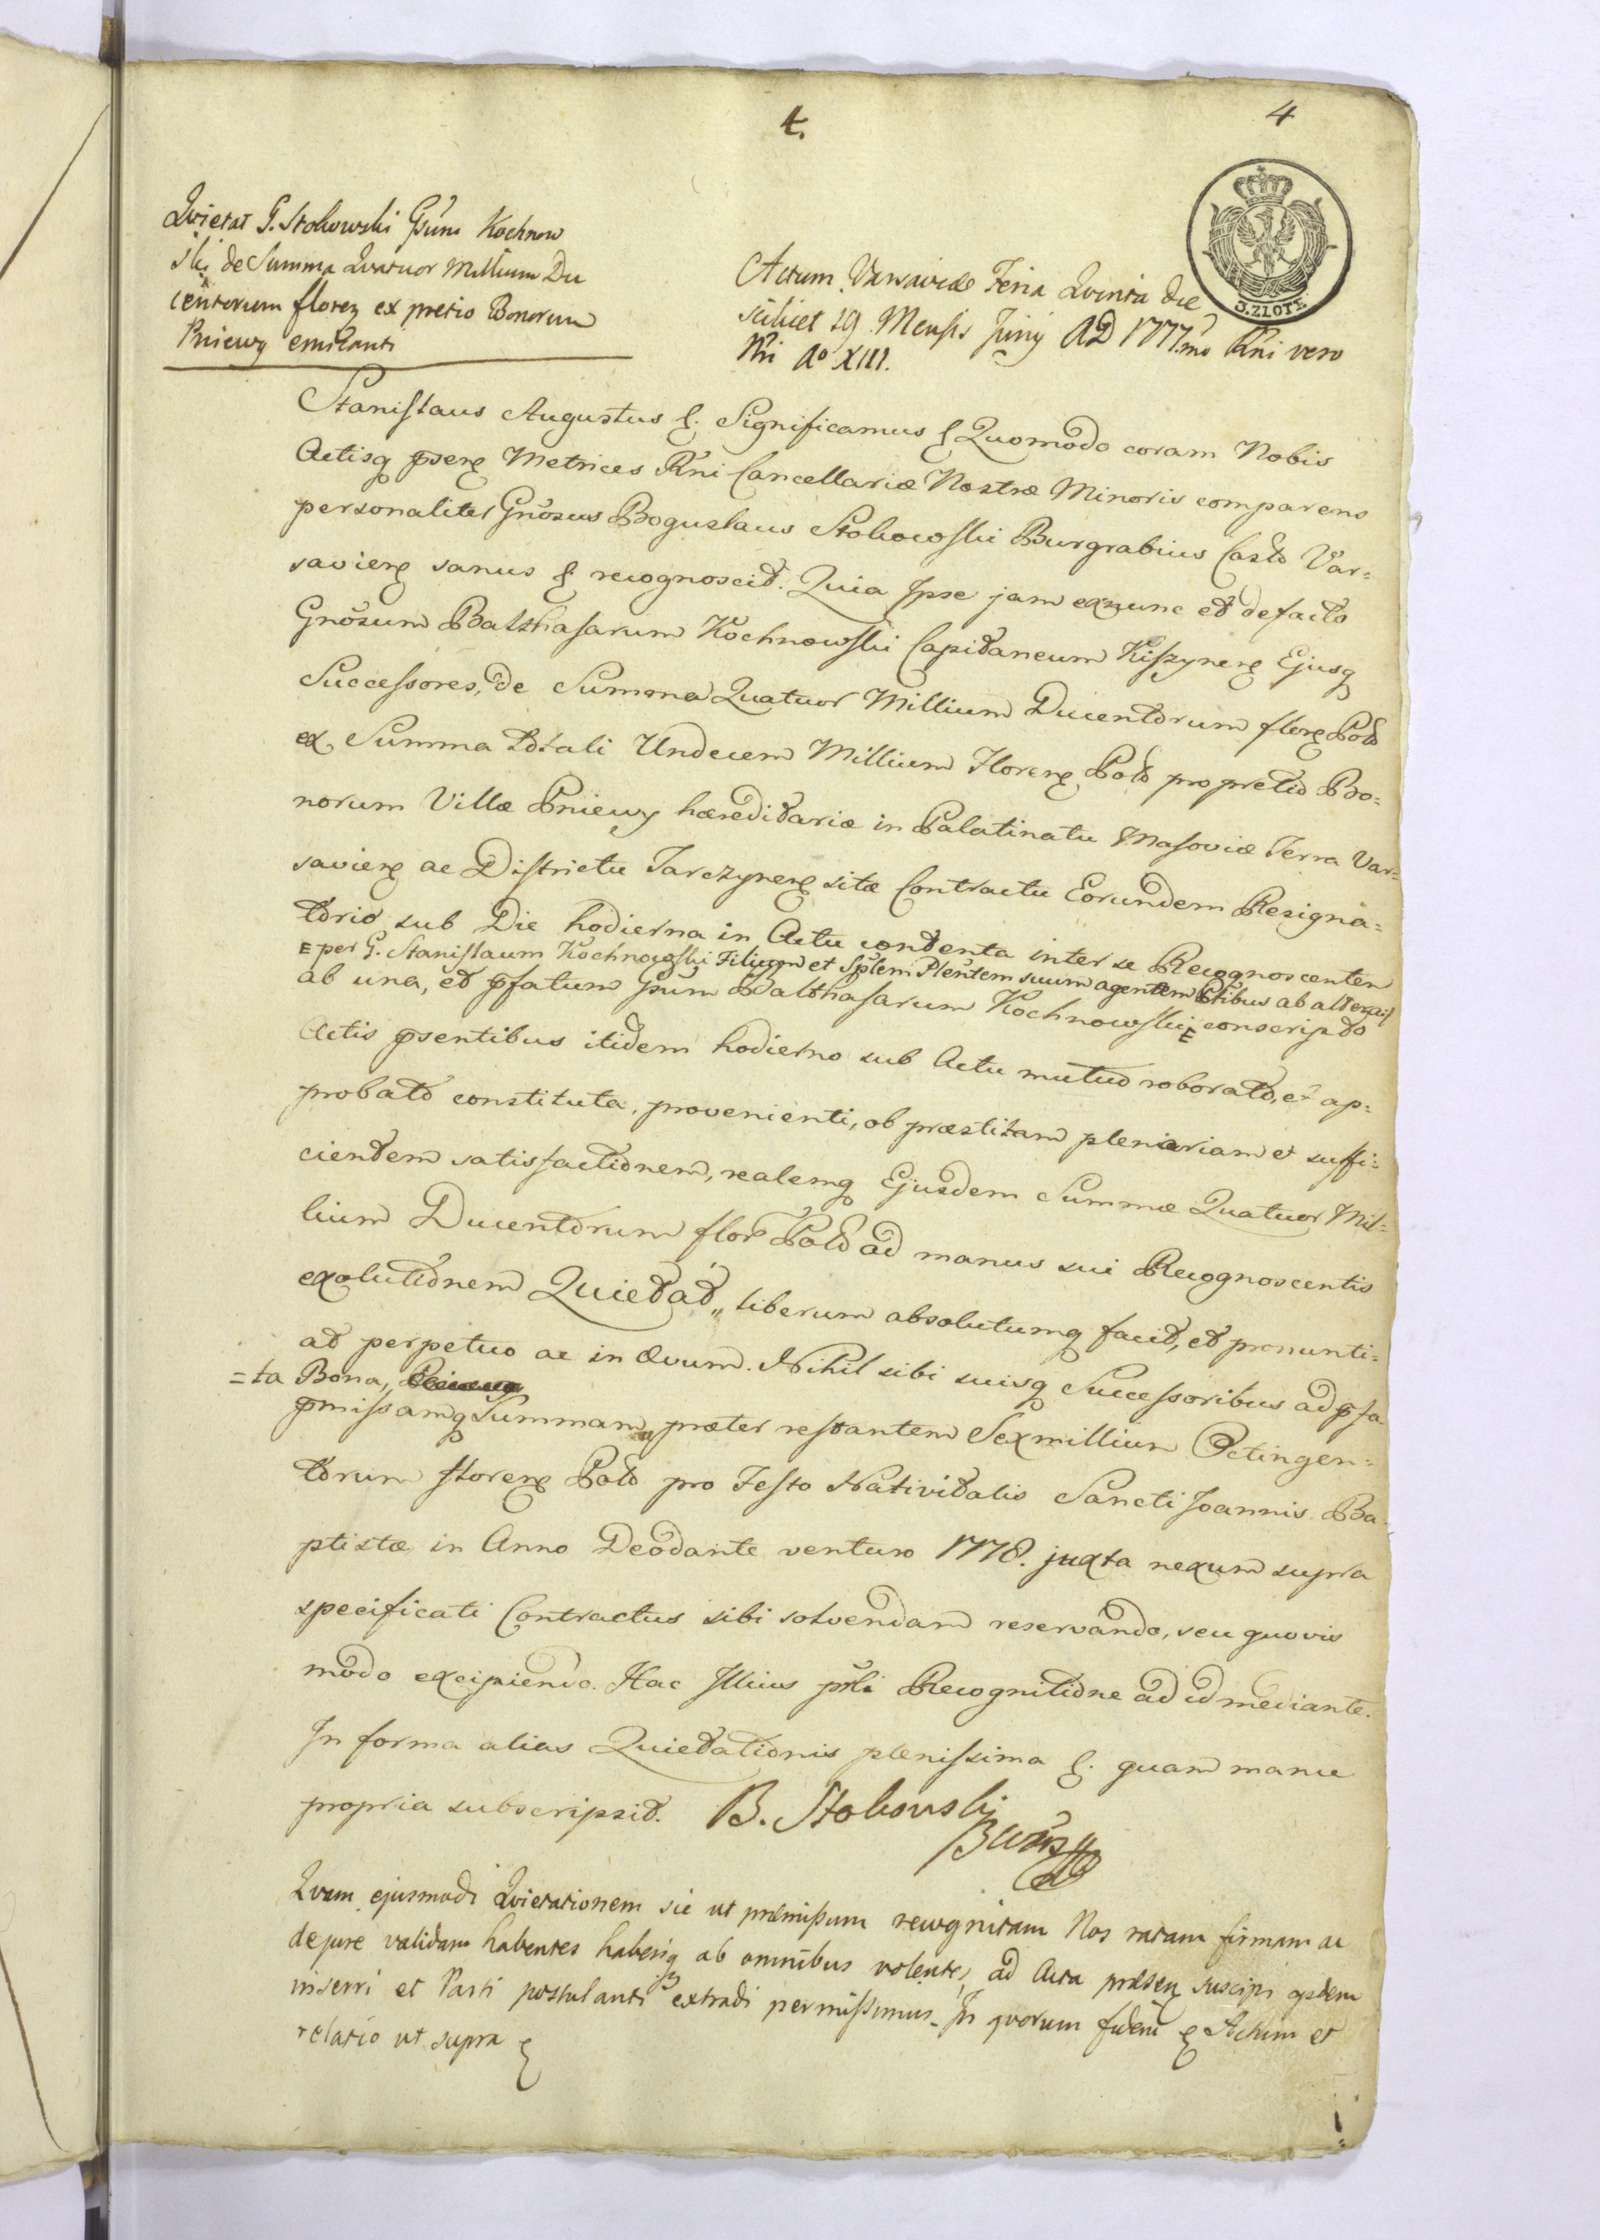 4.
4
3. ZLOTE.
Qvietat G. Stokowski Gsum Kochnow
ski de Summa Qvatuor Millium Du
centorum floren ex pretio Bonorum
Pniewy emitanti
Actum Varsaviæ Feria Qvinta die
scilicet 19 Mensis Junij AD 1777mo Rni vero
Nri Ao XIII.
Stanislaus Augustus &. Significamus & Quomodo coram Nobis
Actisq pseñ Metrices Rni Cancellariæ Nostræ Minoris comparens
personaliter Gnosus Boguslaus Stokowski Burgrabius Castr Var=
savieñ sanus & recognoscit. Quia Ipse jam exnunc et defacto
Gnosum Balthasarum Kochnowski Capitaneum Kiszyneñ Ejusq
Successores, de Summa Quatuor Millium Ducentorum floreñ Pol
ex Summa totali Undecem Millium Floreñ Pol pro pretio Bo=
norum Villæ Pniewy hæreditariæ in Palatinatu Masoviæ Terra Var=
savieñ ac Districtu Tarczyneñ sitæ Contractu Eorundem Resigna=
torio sub Die hodierna in Actu contenta inter se Recognoscenten
per G. Stanislaum Kochnowski Filium et Splem Plentem suum agentem
ab una, et pfatum Gsum Balthasarum Kochnowski conscripto
Actis psentibus itidem hodierno sub Actu mutuo roborato, et ap=
probato constituta, provenienti, ob præstitam plenariam et suffi=
cientem satisfactionem, realemq Ejusdem Summæ Quatuor Mil=
lium Ducentorum flor Pol ad manus sui Recognoscentis
exolutionem Quietat,, liberum absolutumq facit, et pronunti=
at perpetuo ac in ævum. Nihil sibi suisq Successoribus ad pfa
=ta Bona,,
pmissamq Summam,, præter restantem Sexmillium Octingen=
torum floreñ Pol pro Festo Nativitatis Sancti Joannis Ba=
ptistæ in Anno Deodante venturo 1778. juxta nexum supra
specificati Contractus sibi solvendam reservando, seu quovis
modo excipiendo. Hac Illius psli Recognitione ad id mediante.
In forma alias Quietationis plenissima &. quam manu
propria subscripsit. B. Stokowski
Qvam ejusmodi Qvietationem sic ut præmissum recognitam Nos ratam firmam ac
dejure validam habentes haberiq ab omnibus volentes, ad Acta præseñ suscipi
inserri et Parti postulanti extradi permissimus. In qvorum fidem & Actum et
relatio ut supra &